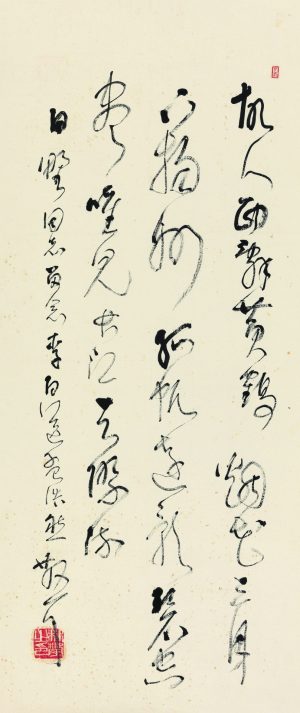 故人西辭黃鶴烟花三月
下揚州孤帆遠影碧空
盡唯見長江天際流
同志留念李白送孟浩然散耳